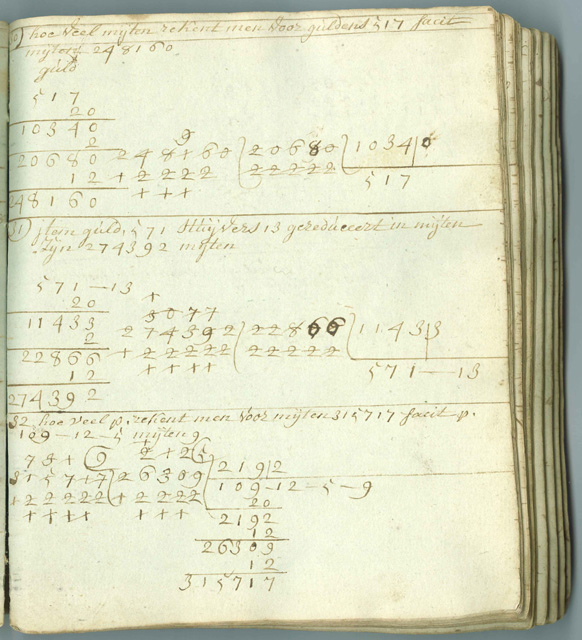 hoe veel myten rekent men voor guldens 517 facit
myten 248160
guld
517
20
10340
2
20680
12
248160
9
248160 20680 1034 0
2222 22222
517
31) jtem guld, 571 Stuyvers 13 gereduceert in myten
zyn 274392 myten
571 — 13
20
11433
2
22866
12
274392
3077
274392 22866 1143 3
22222 22222
571 — 13
32 hoe veel p. rekent men voor myten 315717 facit p.
109 — 12 — 5 myten 9
315717 26309 219 2
22222 2222
109 — 12 — 5 — 9
20
2192
12
26309
12
315717